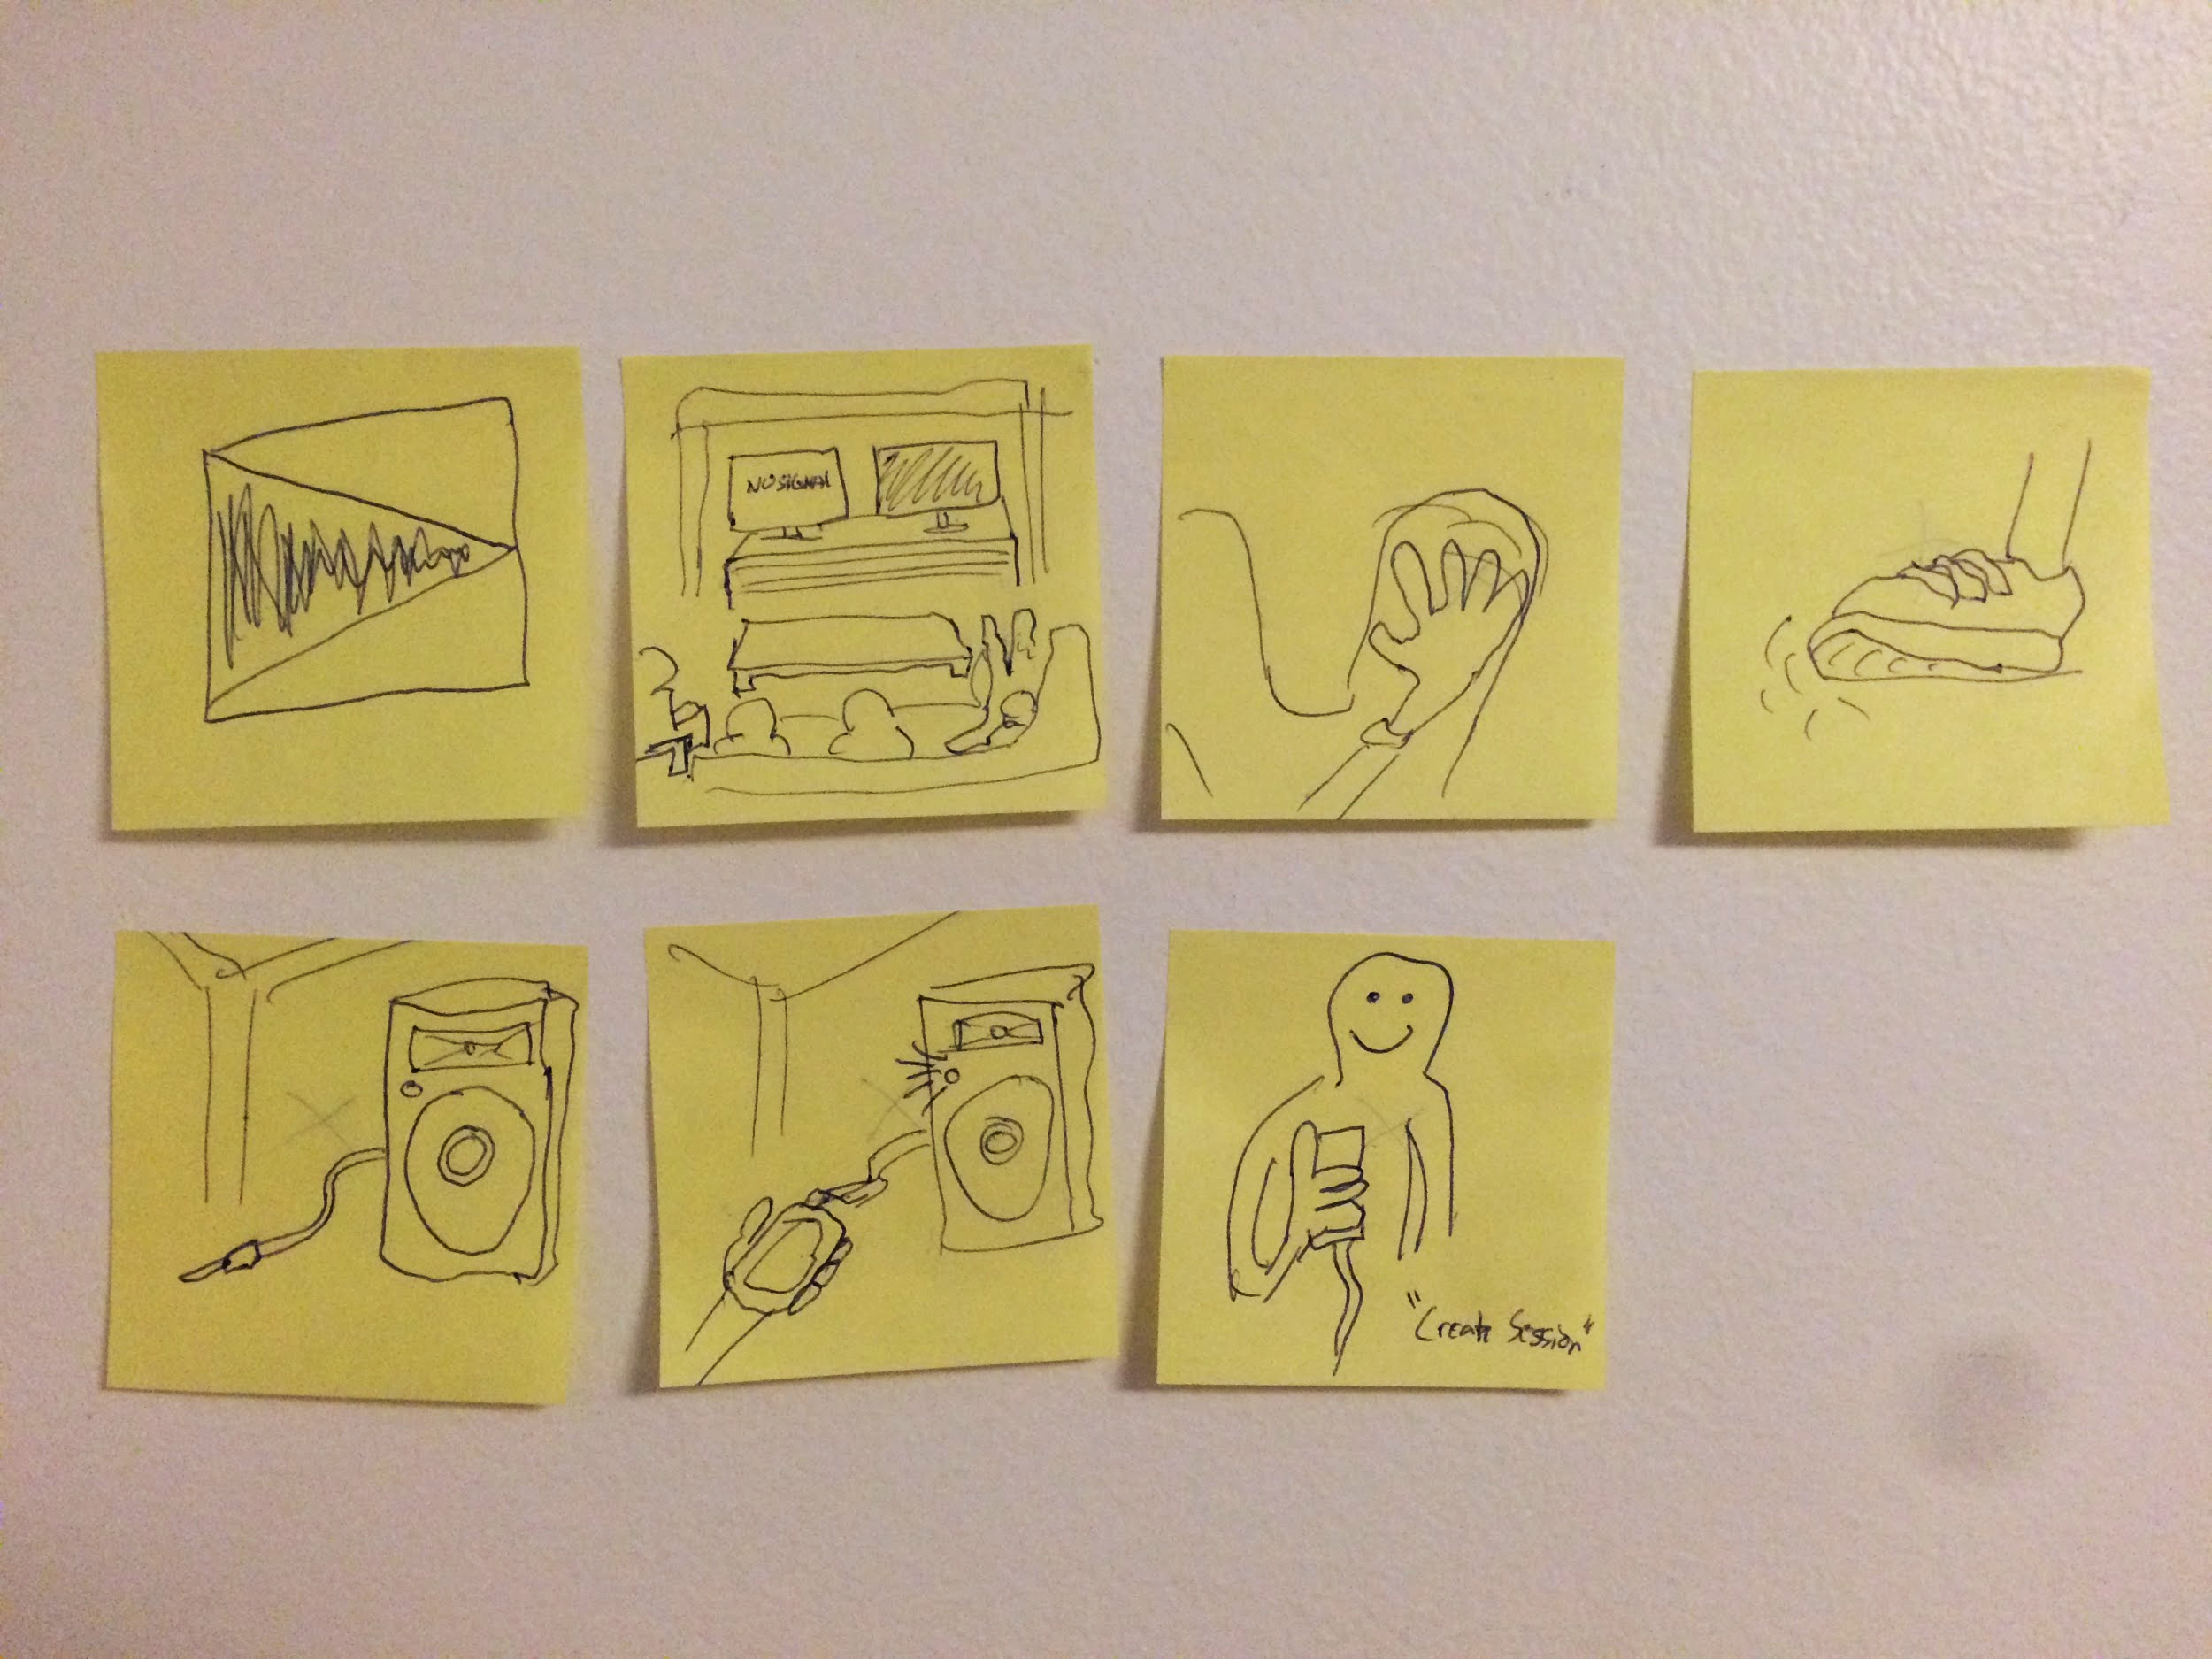 NO SIGNAL
"Create Session"